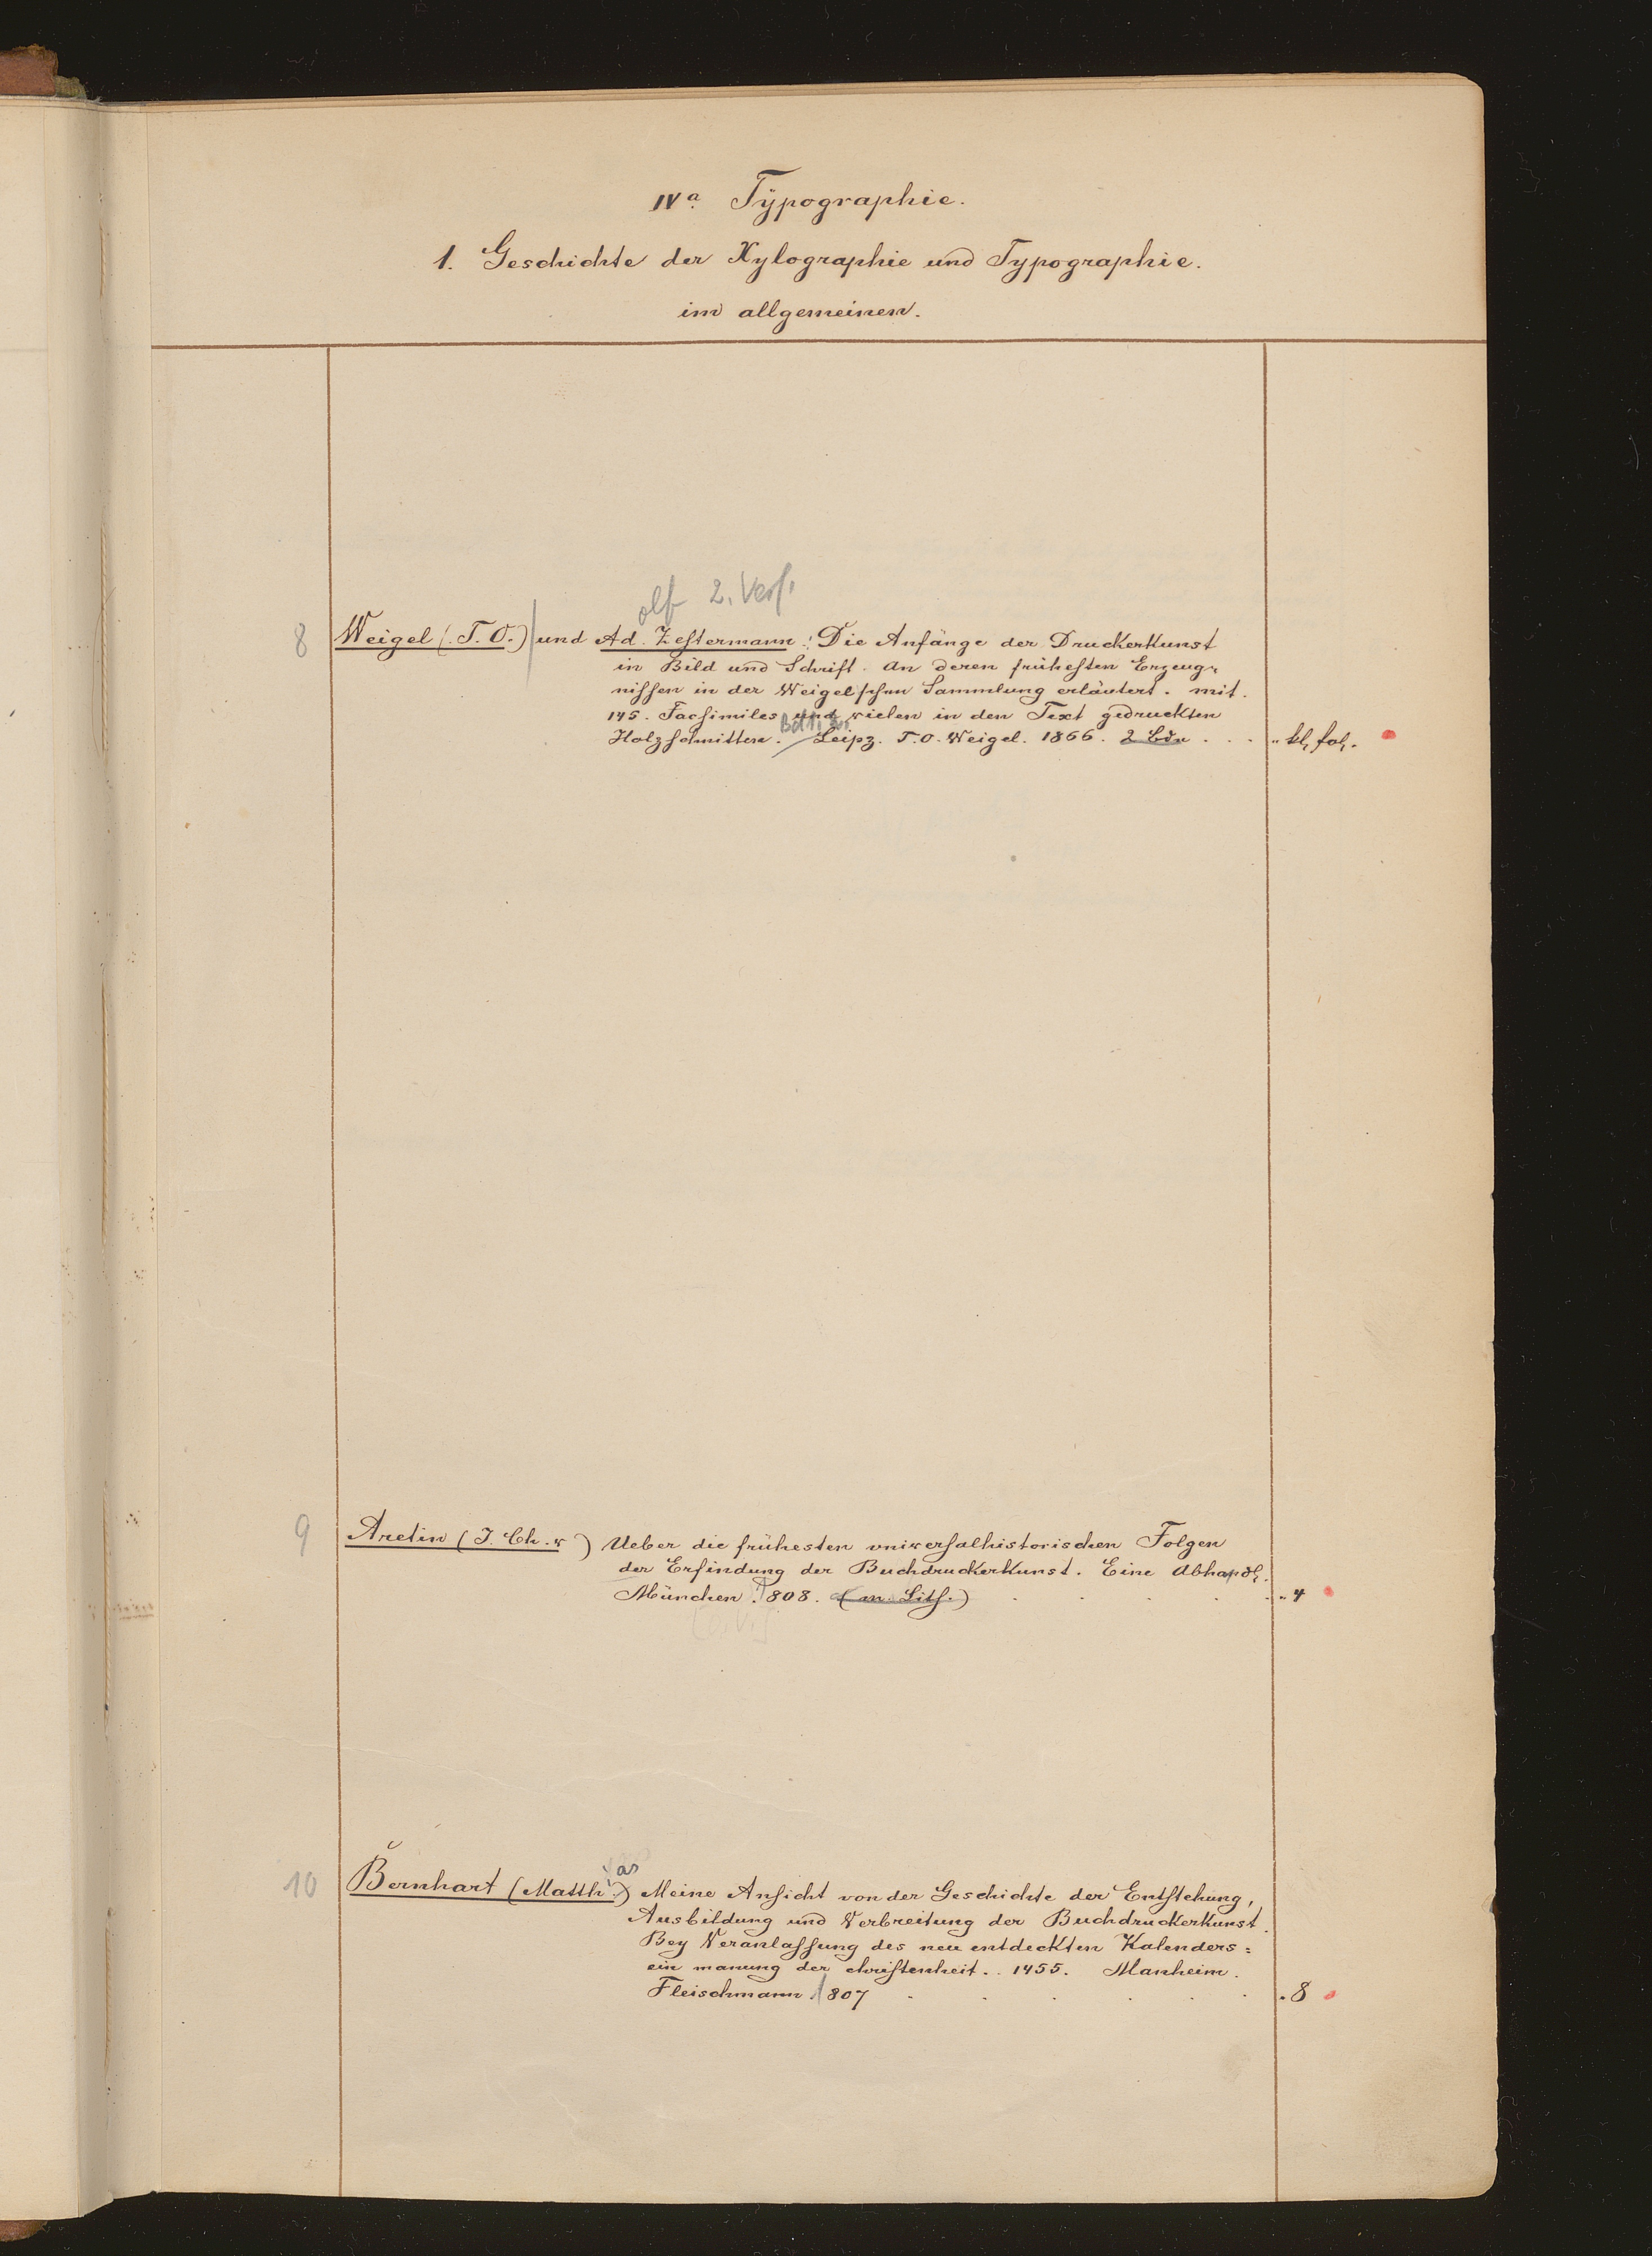 IVa. Typographie.
1. Geschichte der Xylographie und Typographie.
im allgemeinen.
2. Verf.
8 Weigel (T. O.) und Ad. Zestermann: Die Anfänge der Druckerkunst
in Bild und Schrift. An deren frühesten Erzeug-
nissen in der Weigel'schen Sammlung erläutert. mit.
145. Facsimiles und vielen in den Text gedruckten
Bd 1, 2.
Holzschnitten. Leipz. T. O. Weigel. 1866. 2 Bde . . . " kl, fol.
9 Aretin (J. Ch. v) Ueber die frühesten universalhistorischen Folgen
der Erfindung der Buchdruckerkunst. Eine Abhandl.
München. 1808. (m. Lith.) . . . . . " 4
as
10 Bernhart (Matth.) Meine Ansicht von der Geschichte der Entstehung,
Ausbildung und Verbreitung der Buchdruckerkunst.
Bey Veranlassung des neu entdeckten Kalenders:
ein manung der christenheit.. 1455. Manheim.
Fleischmann 1807 . . . . . . " 8